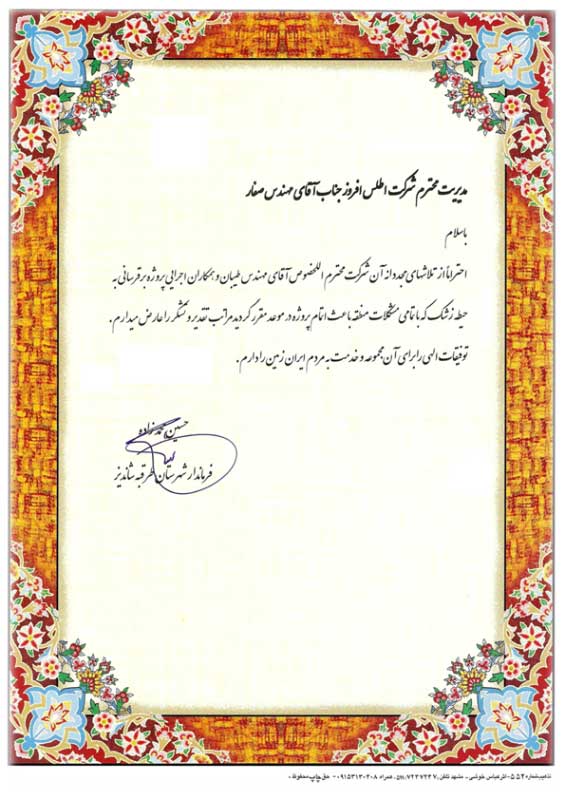 مدیریت محترم شرکت اطلس افروز جناب آقای مهندس صفار
باسلام
احتراما از تلاشهای مجددانه آن شرکت محترم اللخصوص آقای مهندس طیبان و همکاران اجرایی پروژه برقرسانی به
حیطه زشک که با تمامی مشکلات منطقه باعث اتمام پروژه در موعد مقرر گردید مراتب تقدیر و تشکر را عارض میدارم .
توفیقات الهی را برای آن مجموعه و خدمت به مردم ایران زمین را دارم .
حسین محمدزاده
فرماندار شهرستان طرقبه شاندیز
تذهیب شماره ۵۵۲-اثر عباس خوشی - مشهد تلفن: همراه ۰۹۱۵۳۱۳۰۲۰۸ - حق چاپ محفوظ